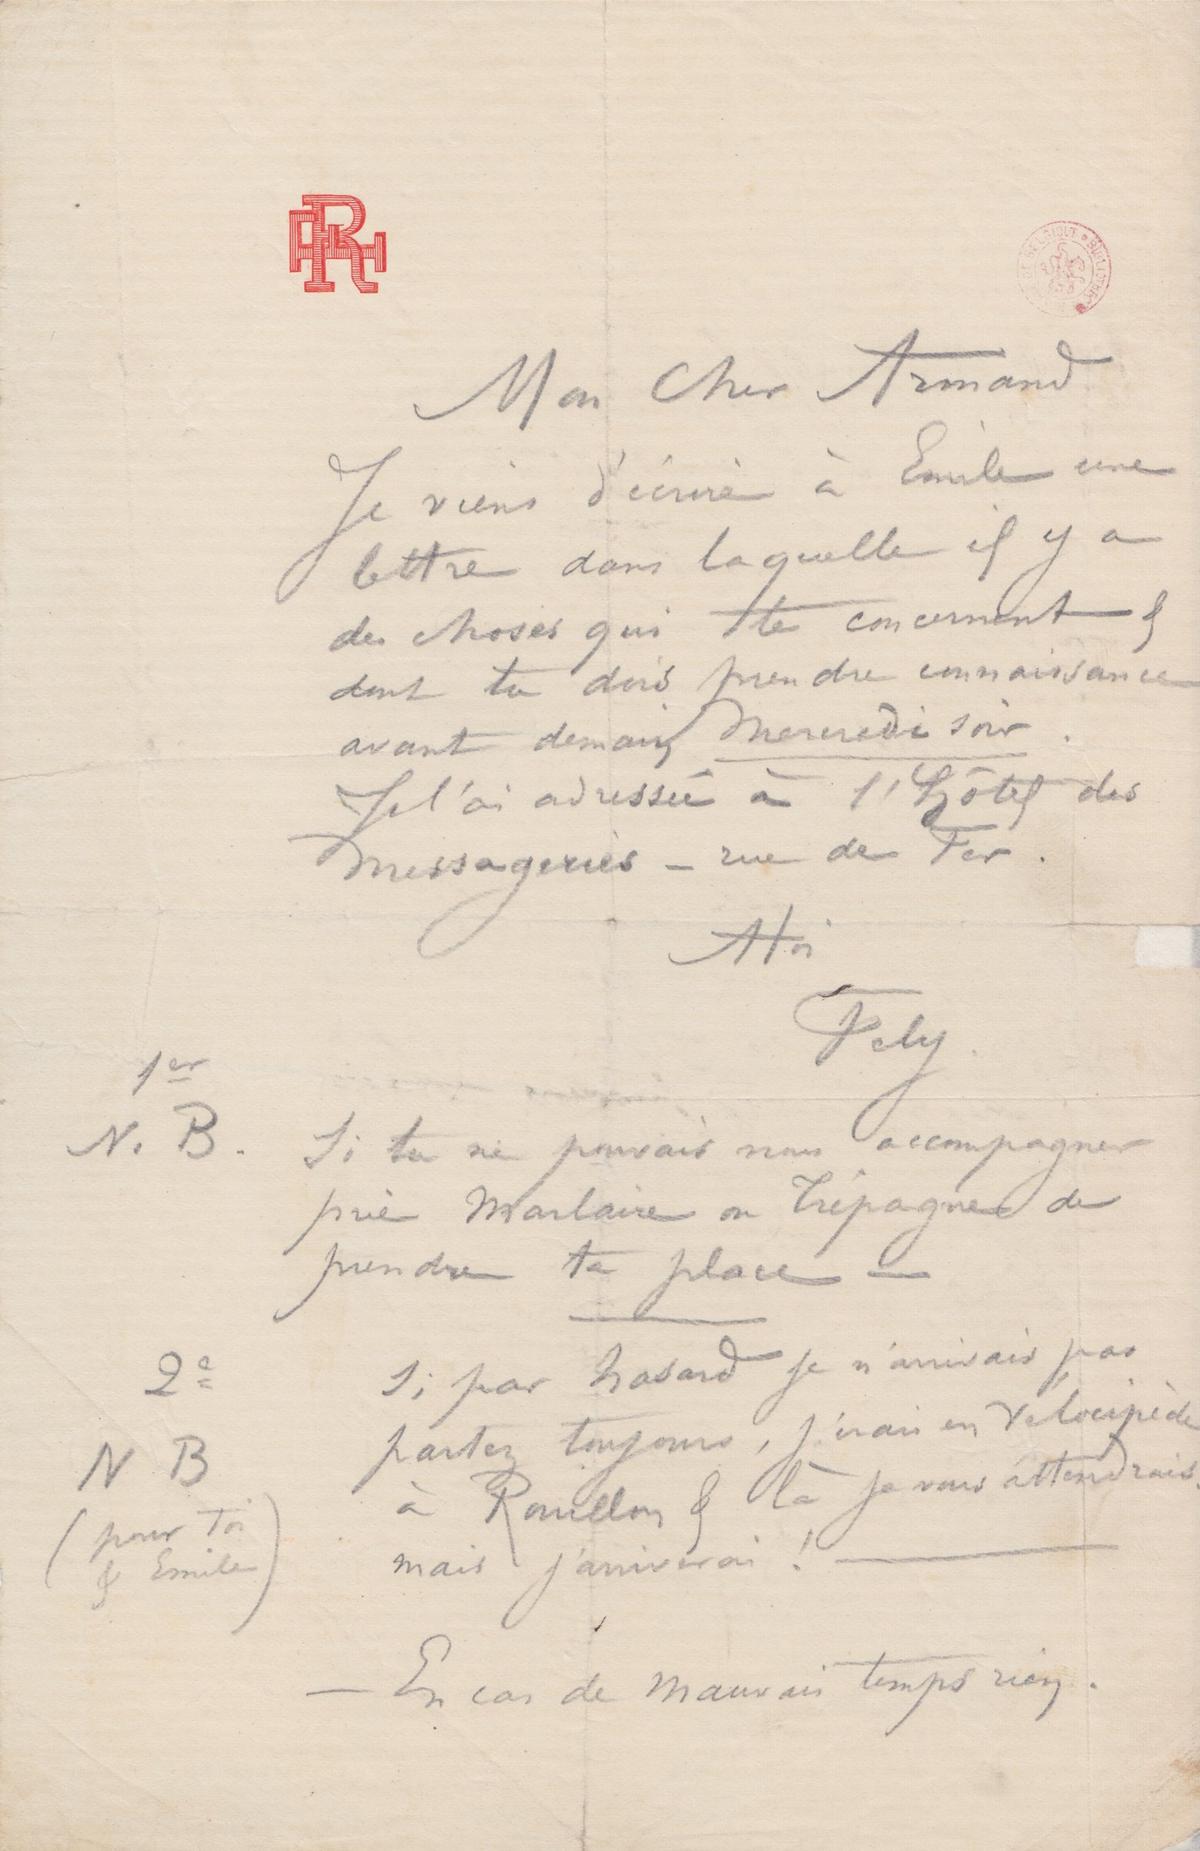 RH
Mon Cher Armand
Je viens d'écrire à Emile une
lettre dans laquelle il y a
des choses qui te concernent &
dont tu dois prendre connaissance
avant demain Mercredi soir.
Je l'ai adressée à l'Hôtel des
Messageries – rue de Fer.
A toi
Fely
1er
N. B. Si tu ne pouvais nous accompagner
prie Marlaire ou Trépagne de
prendre ta place —
2e
N B
(pour toi
& Emile)
Si par hasard je n'arrivais pas
partez toujours, j'irais en Vélocipède
à Rouillon & là je vous attendrais.
mais j'arriverai !
— En cas de mauvais temps rien.